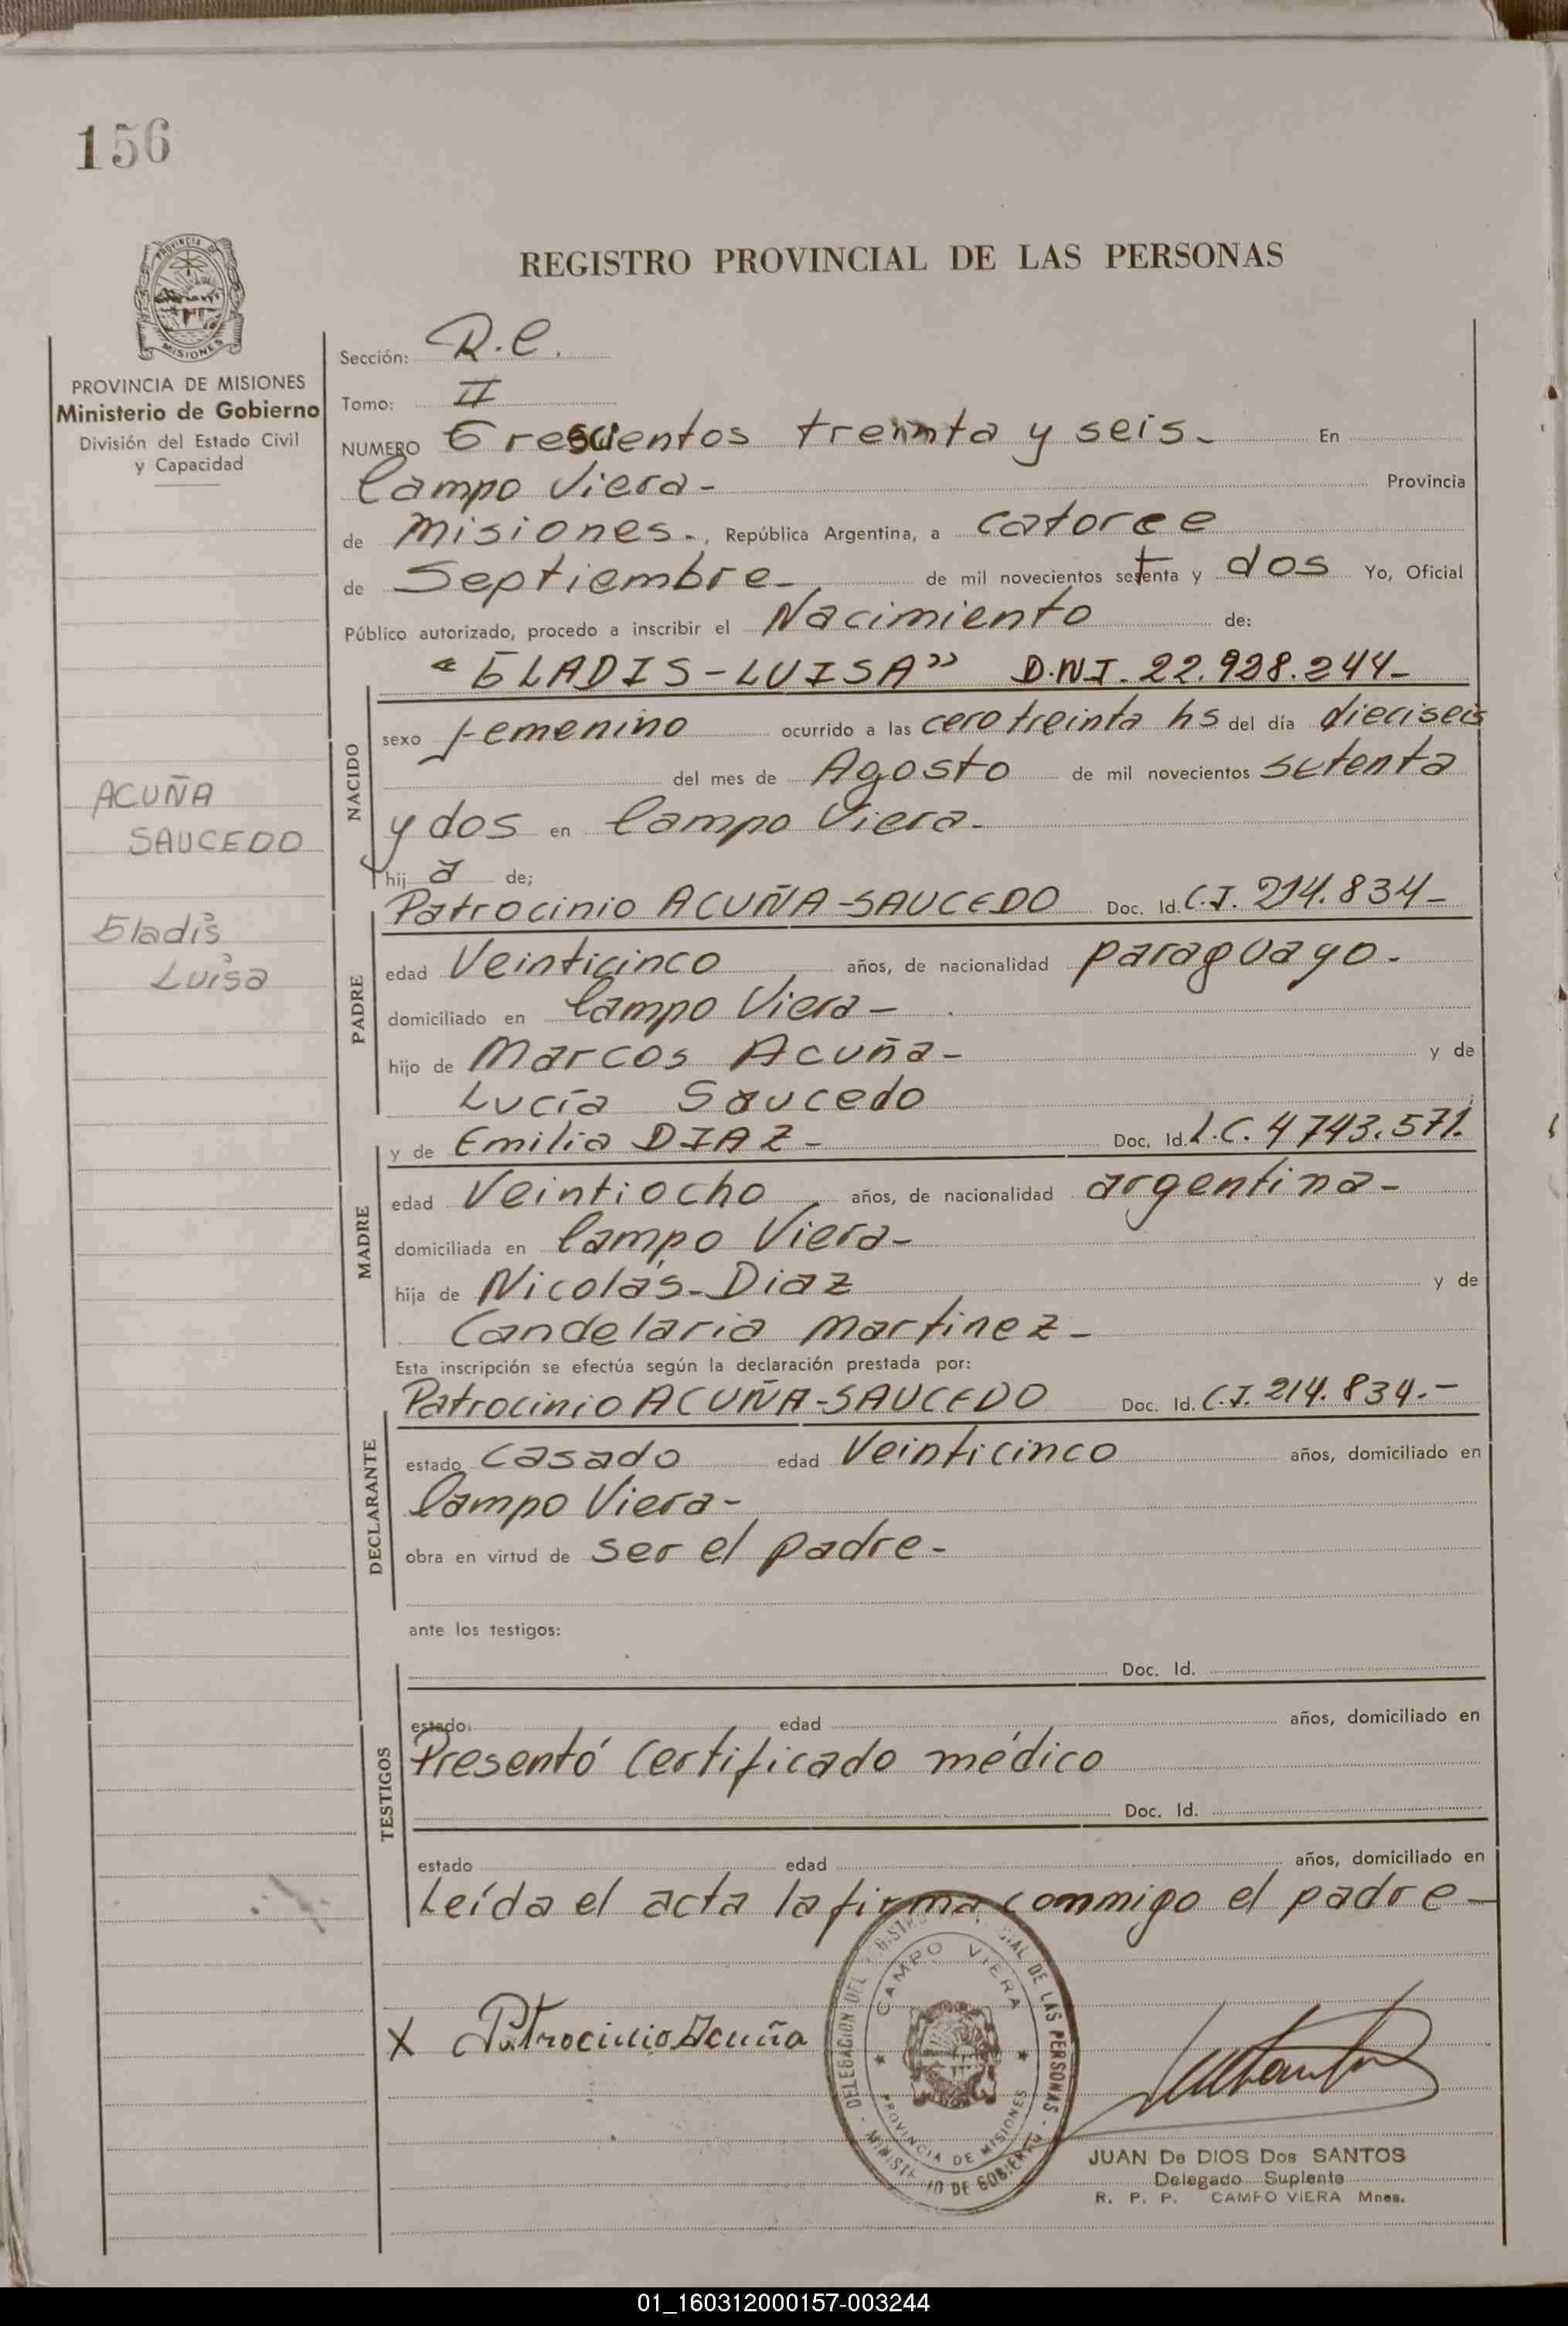 156
REGISTRO PROVINCIAL DE LAS PERSONAS
PROVINCIA DE MISIONES
PROVINCIA DE MISIONES
Ministerio de Gobierno
División del Estado Civil
y Capacidad
ACUÑA
SAUCEDO
Eladis
Luisa
Sección: R.C.
Tomo: II
NUMERO Trescientos treinta y seis - En
Campo Viera - Provincia
de Misiones -, República Argentina, a catorce
de Septiembre - de mil novecientos setenta y dos Yo, Oficial
Público autorizado, procedo a inscribir el Nacimiento de:
"ELADIS-LUISA" D.N.I. 22.928.244-
NACIDO
sexo femenino ocurrido a las cero treinta hs del día dieciseis
del mes de Agosto de mil novecientos setenta
y dos en Campo Viera -
hija de;
PADRE
Patrocinio ACUÑA-SAUCEDO Doc. Id. C.I. 214.834-
edad Veinticinco años, de nacionalidad paraguayo -
domiciliado en Campo Viera -
hijo de Marcos Acuña - y de
Lucía Saucedo
MADRE
y de Emilia DIAZ - Doc. Id. L.C. 4743.571.
edad Veintiocho, años, de nacionalidad argentina -
domiciliada en Campo Viera -
hija de Nicolás - Diaz y de
Candelaria Martinez -
Esta inscripción se efectúa según la declaración prestada por:
DECLARANTE
Patrocinio ACUÑA-SAUCEDO Doc. Id. C.I. 214.834.-
estado casado edad Veinticinco años, domiciliado en
Campo Viera -
obra en virtud de ser el padre -
ante los testigos:
TESTIGOS
Doc. Id.
estado edad años, domiciliado en
Presentó Certificado médico
Doc. Id.
estado edad años, domiciliado en
Leída el acta la firma conmigo el padre -
X Patrocinio Acuña
DELEGACION DEL REGISTRO PROVINCIAL DE LAS PERSONAS - MINISTERIO DE GOBIERNO -
CAMPO VIERA
PROVINCIA DE MISIONES
JUAN De DIOS Dos SANTOS
Delegado Suplente
R. P. P. CAMPO VIERA Mnes.
01_160312000157-003244